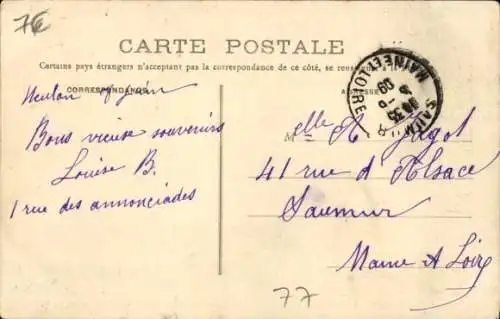 7€
CARTE POSTALE
Certains pays étrangers n'acceptant pas la correspondance de ce côté, se
CORRESPONDANCE
ADRESSE
SAUMUR
MAINE ET LOIRE
Meulan
Bons vieux souvenirs
Louise B.
1 rue des annonciades
Melle A Jagot
41 rue d'Alsace
Saumur
Maine & Loire
77